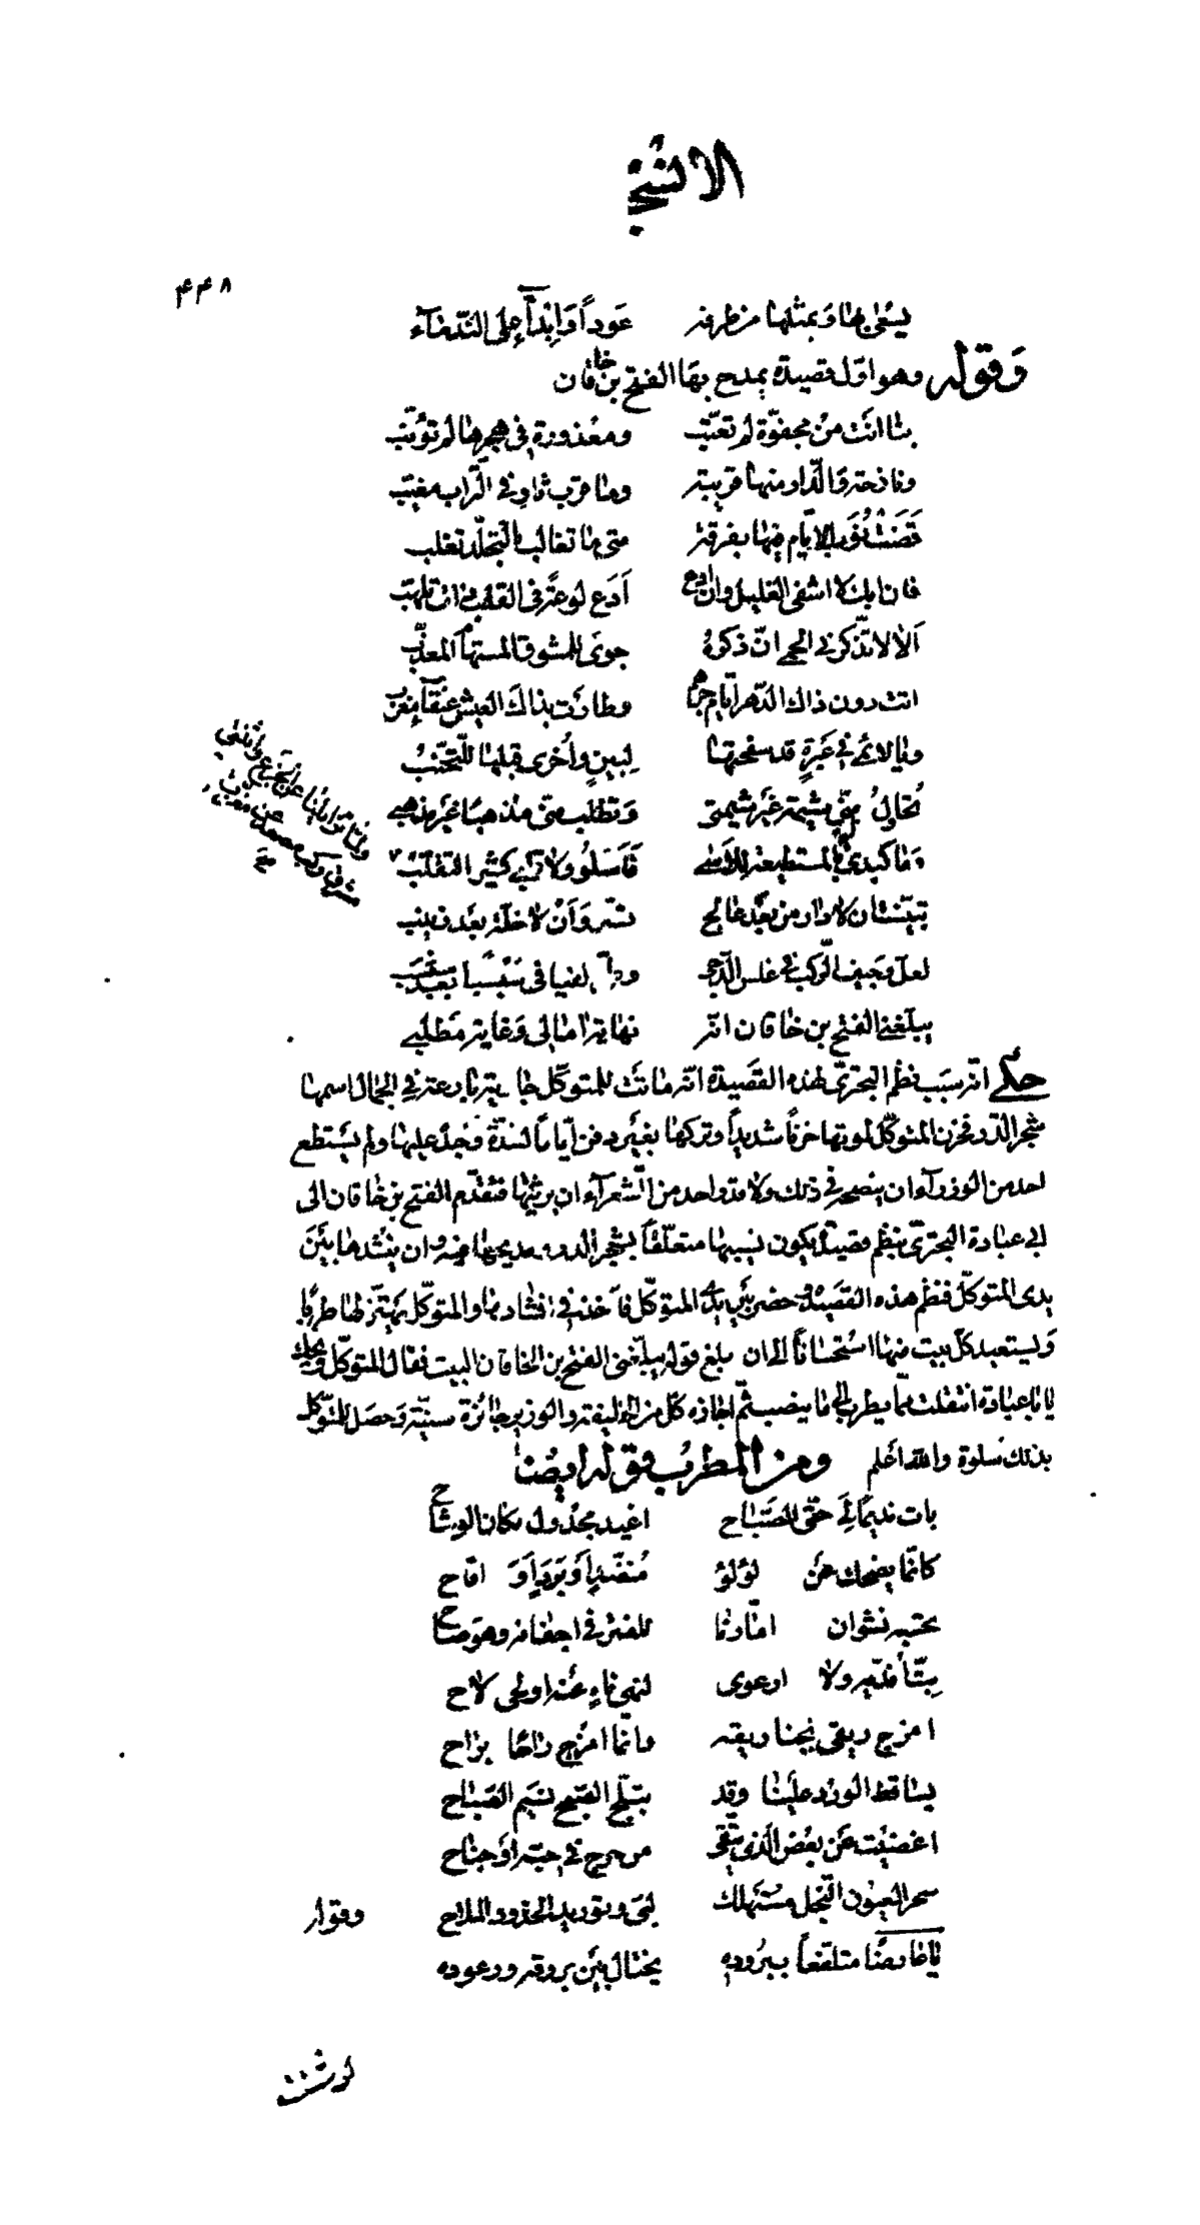 ۴۴۸
يسقى بها وبمثلها من طرفه عَوداً وَإبدآءً على الندمآء
وَقوله وهو اوّل قصيدة يمدح بها الفتح بن خاقان
بنا انت من مجفوّة لم تعتّب ومعذورة في هجرها لم تؤنّب
ونازحة والدّار منها قريبة وما قرب ثاو في التّراب مغيّب
قَضَت عُقَب الايّام فينا بفرقة متى ما تغالب بالتجلّد تغلب
فان ابك لا اشفى الغليل وان ادع اَدَع لوعةً في القلب ذات تلهّب
اَلا لا تذكّرني الحمى انّ ذكره جوىً للمشوق المستهام المعذّب
اتت دون ذاك الدّهر ايّام جرهم وطارت بذاك العيش عنقآء مغرب
ويا لائمى في عَبرةٍ قد سفحتها لِبينٍ وأُخرى قبلها للتّجنّب
تُحاولُ منّي شيمة غير شيمتي وَتطلب منّى مذهبًا غير مذهبي
وَما كبدي بالمستطيعة للأسى فَأسلو ولا قلبي كثير التقلّب
تبيّنت ان لا دار من بعد عالج تسرّ وَأنْ لا خلّة بعد زينب
لعلّ وجيف الرّكب في غلس الدّجى
يبلّغني الفتح بن خاقان انّه نهاية امالى وَغاية مَطلبي
حكي انّه سبَب نظم البحترىّ لهذه القصَيدة انّه ماتت للمتوكّل جارية بارعة في الجمال اسمها
شجر الدّر فحزن المتوكّل لموتها حزنًا شديداً وتركها بغير دفن ايّاماً لشدّة وَجْدهِ عليها ولم يسَتطع
احد من الوزرآء ان ينصحه في ذلك ولا قدر واحد من الشّعرآء ان يرثيها فتقدّم الفتح بن خاقان الى
ابي عبادة البحترىّ بنظم قصيدة يكون نسيبها متعلّقاً بشجر الدر ومديحها فيه وان ينشدها بَيْنَ
يدى المتوكّل فنظم هذه القصَيدة وحضر بَين يدى المتوكّل فأخذ في انشادها والمتوكّل يهتزّ لها طربًا
وَيستعيد كلّ بيت منها استحسَاناً الى ان بلغ قوله يبلّغنى الفتح بن الخاقان البيت فقال المتوكّل ويحك
يا با عبادة انتقلت ممّا يطرب الى ما يغضب ثمّ اجازه كلّ من الخليفة والوزير جائزة سنيّة وَحصَل للمتوكّل
بذلك سَلوة والله اعلم ومن المطرب قوله ايضًا
بات نديمًا لي حتّى الصّباح اغيد مجدُول مكان الوشاح
كانّما يضحك عَن لؤلؤ مُنضّد أو بَرَد أوَ اقاح
تحسبه نشوان امّا رنا للفتر في اجفانه وهو صَاح
بتّ أفدّيه ولا ارعوى لنهى ناهٍ عَنه او لحى لاح
امزج ريقى بجنا ريقه وانّما امزج راحًا براح
يساقط الورد علَينا وقد تبلّج الصّبح نسيم الصّباح
اغضيت عَن بعض الّذي يتّقى من حرج في حبّه أو جناح
سحر العيون النّجل مستهلك لبّى وتوريد الخدود الملاح وقوله
يا عارضًا متلفّعاً ببرُودهِ يختال بَين بروقه ورعوده